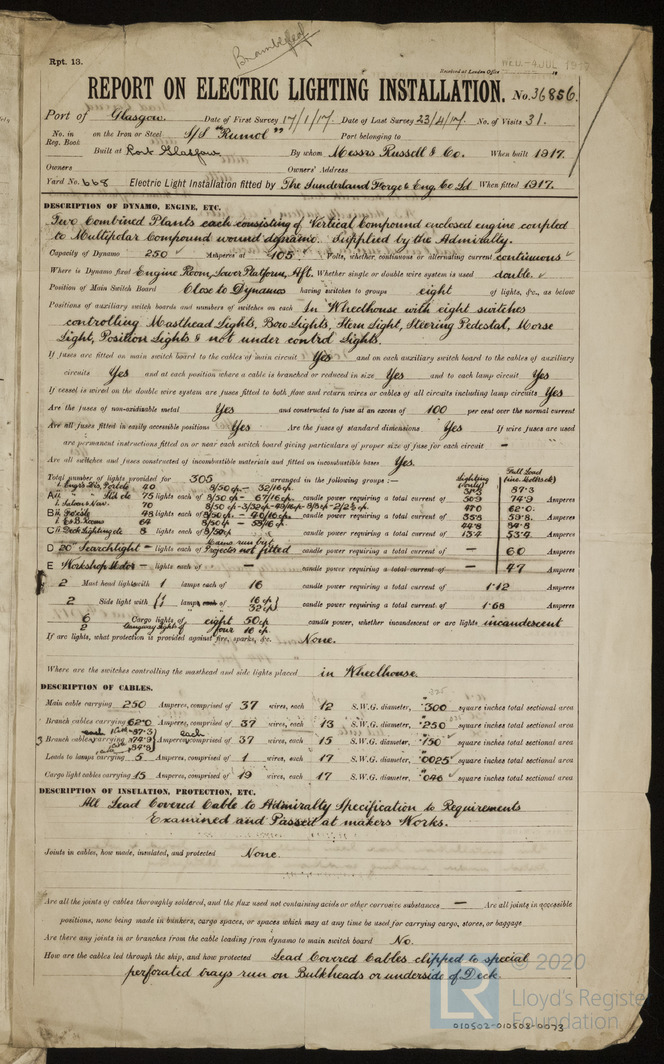 Rpt. 13.
Brambleleaf
Received at London Office
WED. 4 JUL 1917
REPORT ON ELECTRIC LIGHTING INSTALLATION. No. 36856.
Port of Glasgow. Date of First Survey 17/1/17. Date of Last Survey 23/4/17. No. of Visits 31.
No. in Reg. Book on the Iron or Steel S/S "Rumol" Port belonging to
Built at Port Glasgow By whom Messrs Russell & Co. When built 1917.
Owners Owners' Address
Yard No. 668 Electric Light Installation fitted by The Sunderland Forge & Eng. Co Ld When fitted 1917.
DESCRIPTION OF DYNAMO, ENGINE, ETC.
Two Combined Plants each consisting of Vertical Compound enclosed engine coupled
to Multipolar Compound wound dynamo. Supplied by the Admiralty.
Capacity of Dynamo 250 Amperes at 105 Volts, whether continuous or alternating current continuous
Where is Dynamo fixed Engine Room, Lower Platform, Aft. Whether single or double wire system is used double.
Position of Main Switch Board Close to Dynamos having switches to groups eight of lights, &c., as below
Positions of auxiliary switch boards and numbers of switches on each In Wheelhouse with eight switches
controlling Masthead Lights, Bow Lights, Stern Light, Steering Pedestal, Morse
Light, Position Lights & not under control Lights.
If fuses are fitted on main switch board to the cables of main circuit Yes and on each auxiliary switch board to the cables of auxiliary
circuits Yes and at each position where a cable is branched or reduced in size Yes and to each lamp circuit Yes
If vessel is wired on the double wire system are fuses fitted to both flow and return wires or cables of all circuits including lamp circuits Yes
Are the fuses of non-oxidizable metal Yes and constructed to fuse at an excess of 100 per cent over the normal current
Are all fuses fitted in easily accessible positions Yes Are the fuses of standard dimensions Yes If wire fuses are used
are permanent instructions fitted on or near each switch board giving particulars of proper size of fuse for each circuit -
Are all switches and fuses constructed of incombustible materials and fitted on incombustible bases Yes.
Total number of lights provided for 305 arranged in the following groups :—
Lighting (only) Full Load (inc. Motors &c)
40 8/50 cp - 32/16 cp. 87.3
75 lights each of 8/50 cp - 67/16 cp. candle power requiring a total current of 50.9 74.9 Amperes
70 47.0 62.0
48 lights each of candle power requiring a total current of 35.8 59.8 Amperes
64 44.8 84.8
C Deck Lighting &c 8 lights each of 8/50 cp candle power requiring a total current of 13.4 53.4 Amperes
D 20" Searchlight - lights each of Projector not fitted candle power requiring a total current of - 60 Amperes
E Workshop Motor - lights each of - candle power requiring a total current of - 47 Amperes
2 Mast head light with 1 lamps each of 16 candle power requiring a total current of 1.12 Amperes
2 Side light with 1 lamps each of 16 cp 32 cp candle power requiring a total current of 1.68 Amperes
6 Cargo lights of eight 50 cp candle power, whether incandescent or arc lights incandescent
2 Gangway Lights of four 16 cp.
If arc lights, what protection is provided against fire, sparks, &c. None.
Where are the switches controlling the masthead and side lights placed in Wheelhouse.
DESCRIPTION OF CABLES.
Main cable carrying 250 Amperes, comprised of 37 wires, each 12 S.W.G. diameter, .300 square inches total sectional area
Branch cables carrying 62.0 Amperes, comprised of 37 wires, each 13 S.W.G. diameter, .250 square inches total sectional area
3 Branch cables carrying 87.3 74.9 84.8 Amperes, each comprised of 37 wires, each 15 S.W.G. diameter, .150 square inches total sectional area
Leads to lamps carrying 5 Amperes, comprised of 1 wires, each 17 S.W.G. diameter, .0025 square inches total sectional area
Cargo light cables carrying 15 Amperes, comprised of 19 wires, each 17 S.W.G. diameter, .046 square inches total sectional area
DESCRIPTION OF INSULATION, PROTECTION, ETC.
All Lead Covered Cable to Admiralty Specification to Requirements
Examined and Passed at makers Works.
Joints in cables, how made, insulated, and protected None.
Are all the joints of cables thoroughly soldered, and the flux used not containing acids or other corrosive substances — Are all joints in accessible
positions, none being made in bunkers, cargo spaces, or spaces which may at any time be used for carrying cargo, stores, or baggage
Are there any joints in or branches from the cable leading from dynamo to main switch board No.
How are the cables led through the ship, and how protected Lead Covered Cables clipped to special
perforated trays run on Bulkheads or underside of Deck.
© 2020
LR Lloyd's Register
Foundation
010502-010508-0073